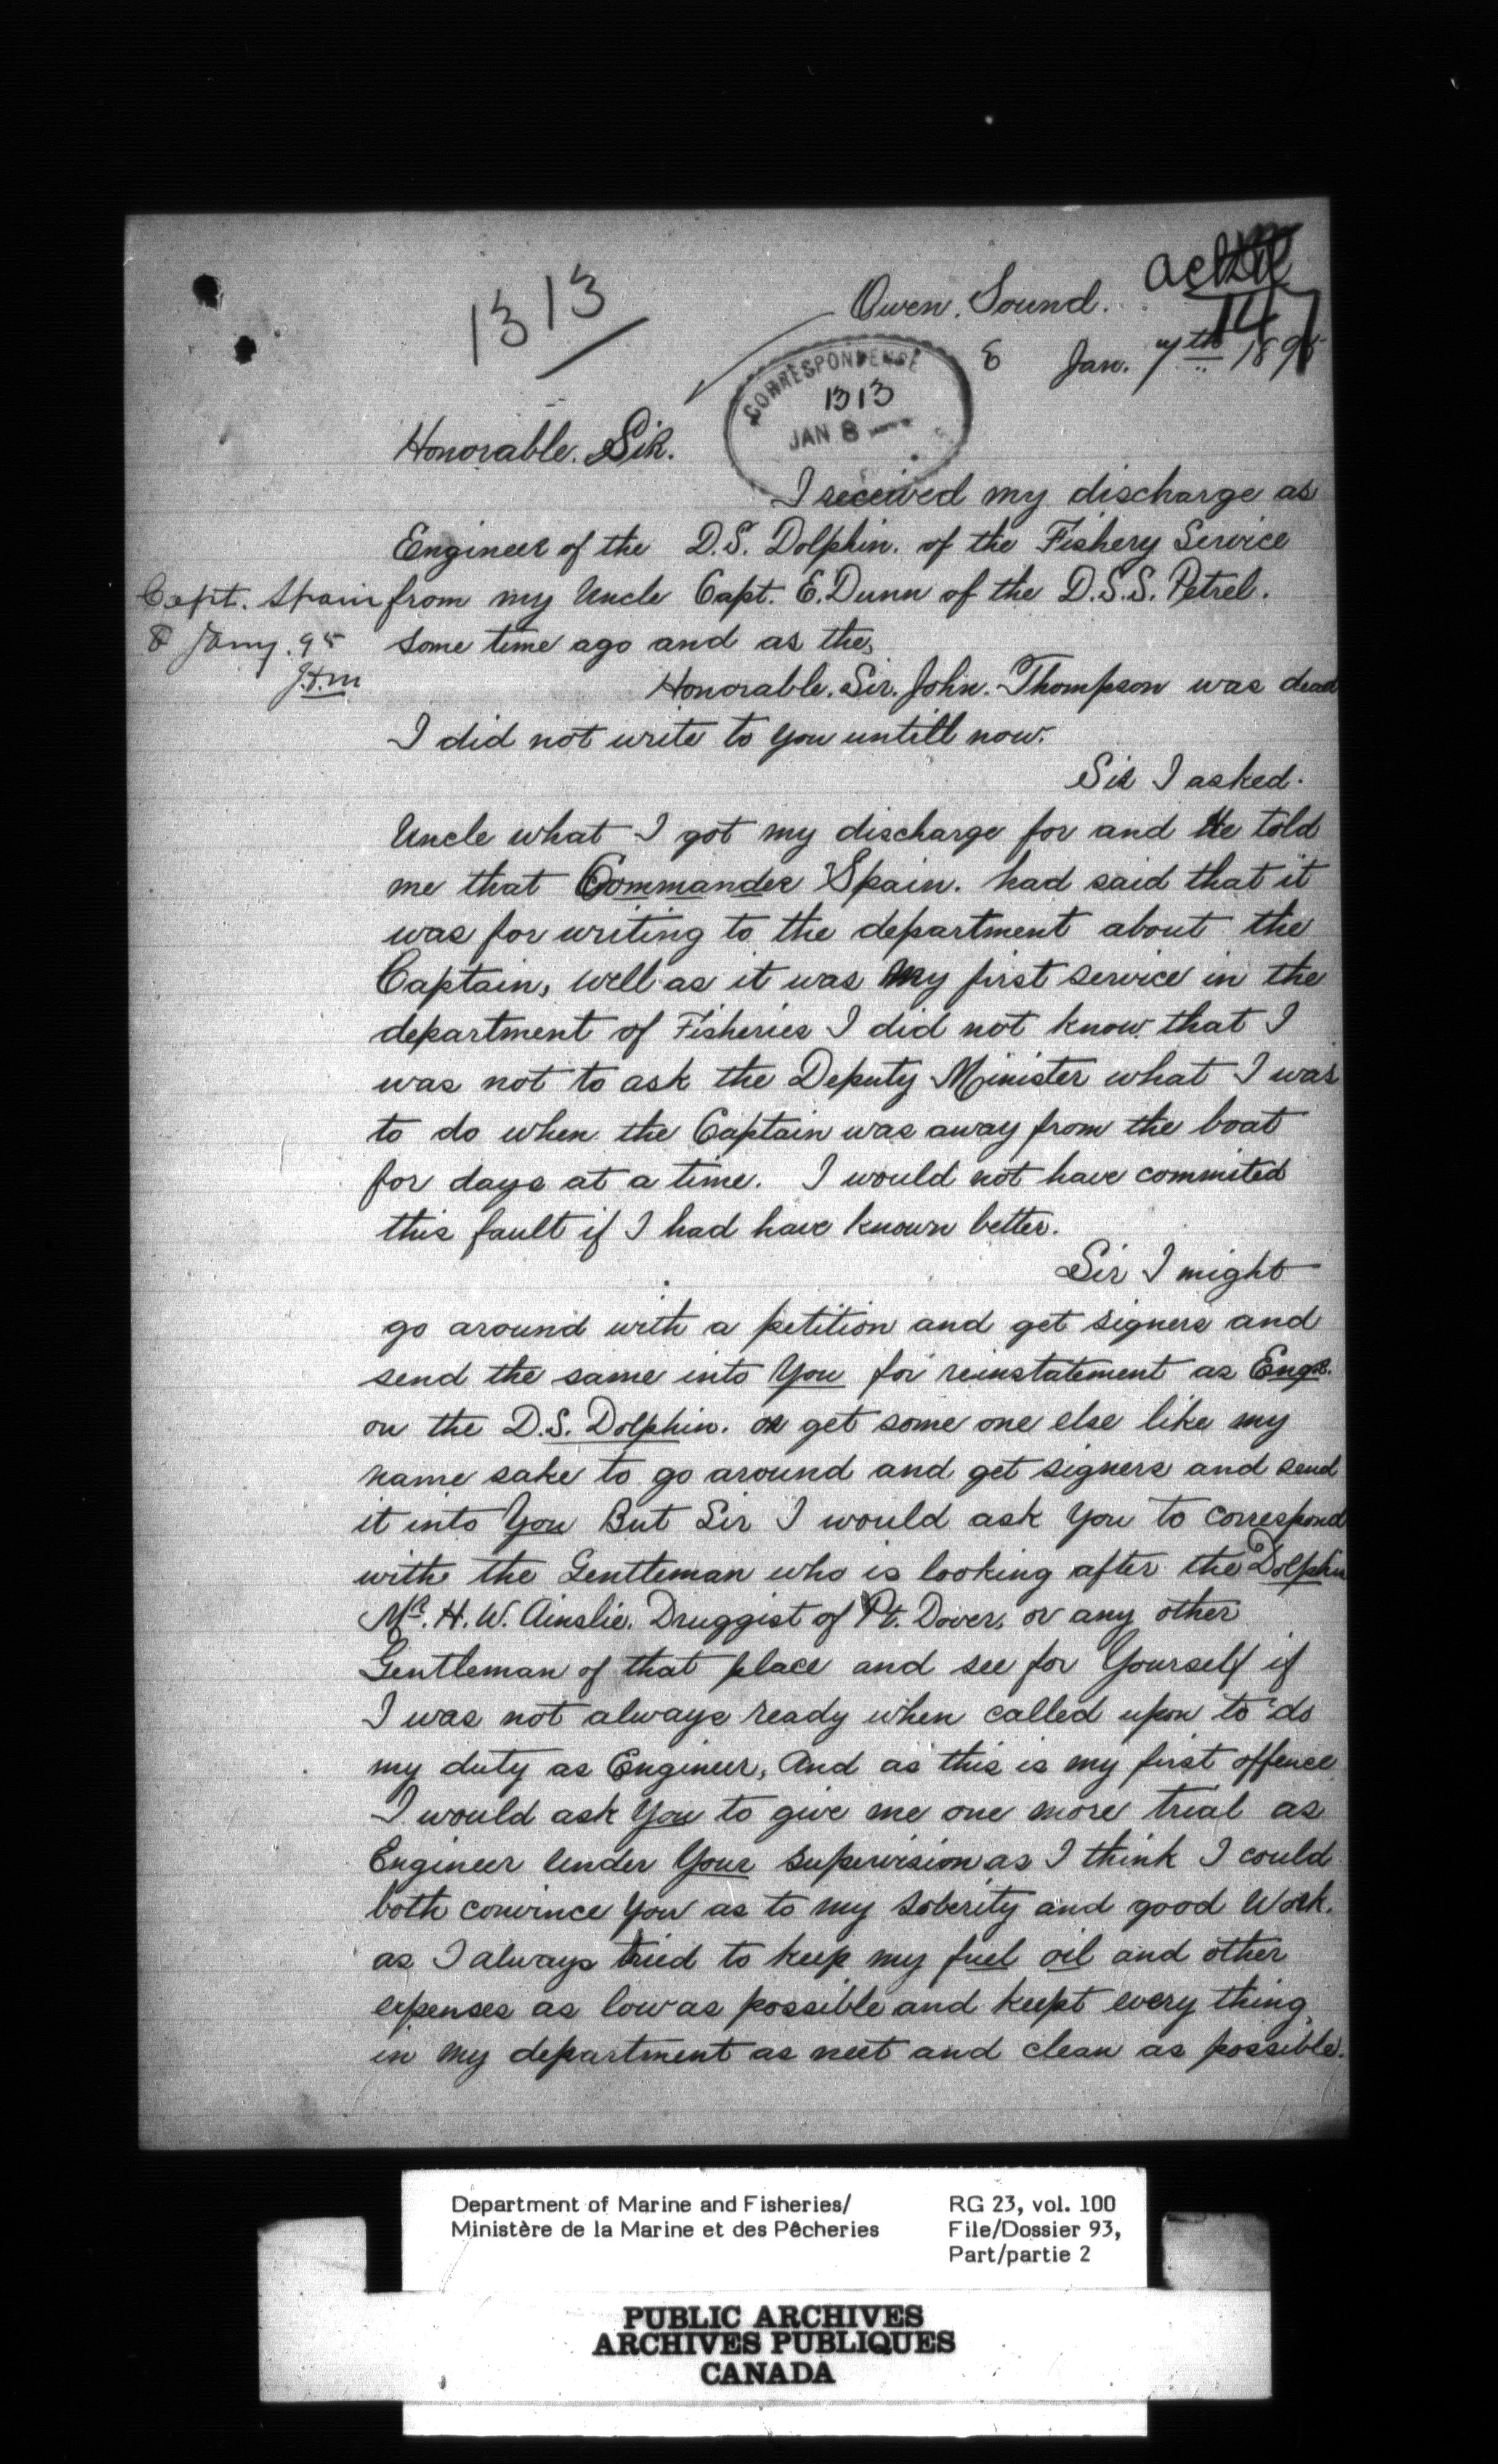 1313
Owen. Sound.
147
8 Jan. 7th 1895
CORRESPONDENCE
1313
JAN 8
Honorable. Sir.
I received my discharge as
Engineer of the D.S. Dolphin. of the Fishery Service
Capt. Spain
8 Jany. 95
from my Uncle Capt. E. Dunn of the D.S.S. Petrel.
some time ago and as the,
Honorable. Sir. John. Thompson was dead
I did not write to you untill now.
Sir I asked.
Uncle what I got my discharge for and He told
me that Commander Spain. had said that it
was for writing to the department about the
Captain, well as it was my first service in the
department of Fisheries I did not know that I
was not to ask the Deputy Minister what I was
to do when the Captain was away from the boat
for days at a time. I would not have commited
this fault if I had have known better.
Sir I might
go around with a petition and get signers and
send the same into You for reinstatement as Engr.
on the D.S. Dolphin. or get some one else like my
name sake to go around and get signers and send
it into You But Sir I would ask you to correspond
with the Gentleman who is looking after the Dolphin
Mr. H. W. Ainslie. Druggist of Pt. Dover, or any other
Gentleman of that place and see for Yourself if
I was not always ready when called upon to do
my duty as Engineer, And as this is my first offence
I would ask You to give me one more trial as
Engineer under Your supervision as I think I could
both convince you as to my soberity and good Work.
as I always tried to keep my fuel oil and other
expenses as low as possible and keept every thing
in my department as neet and clean as possible.
Department of Marine and Fisheries/
Ministère de la Marine et des Pêcheries
RG 23, vol. 100
File/Dossier 93,
Part/partie 2
PUBLIC ARCHIVES
ARCHIVES PUBLIQUES
CANADA